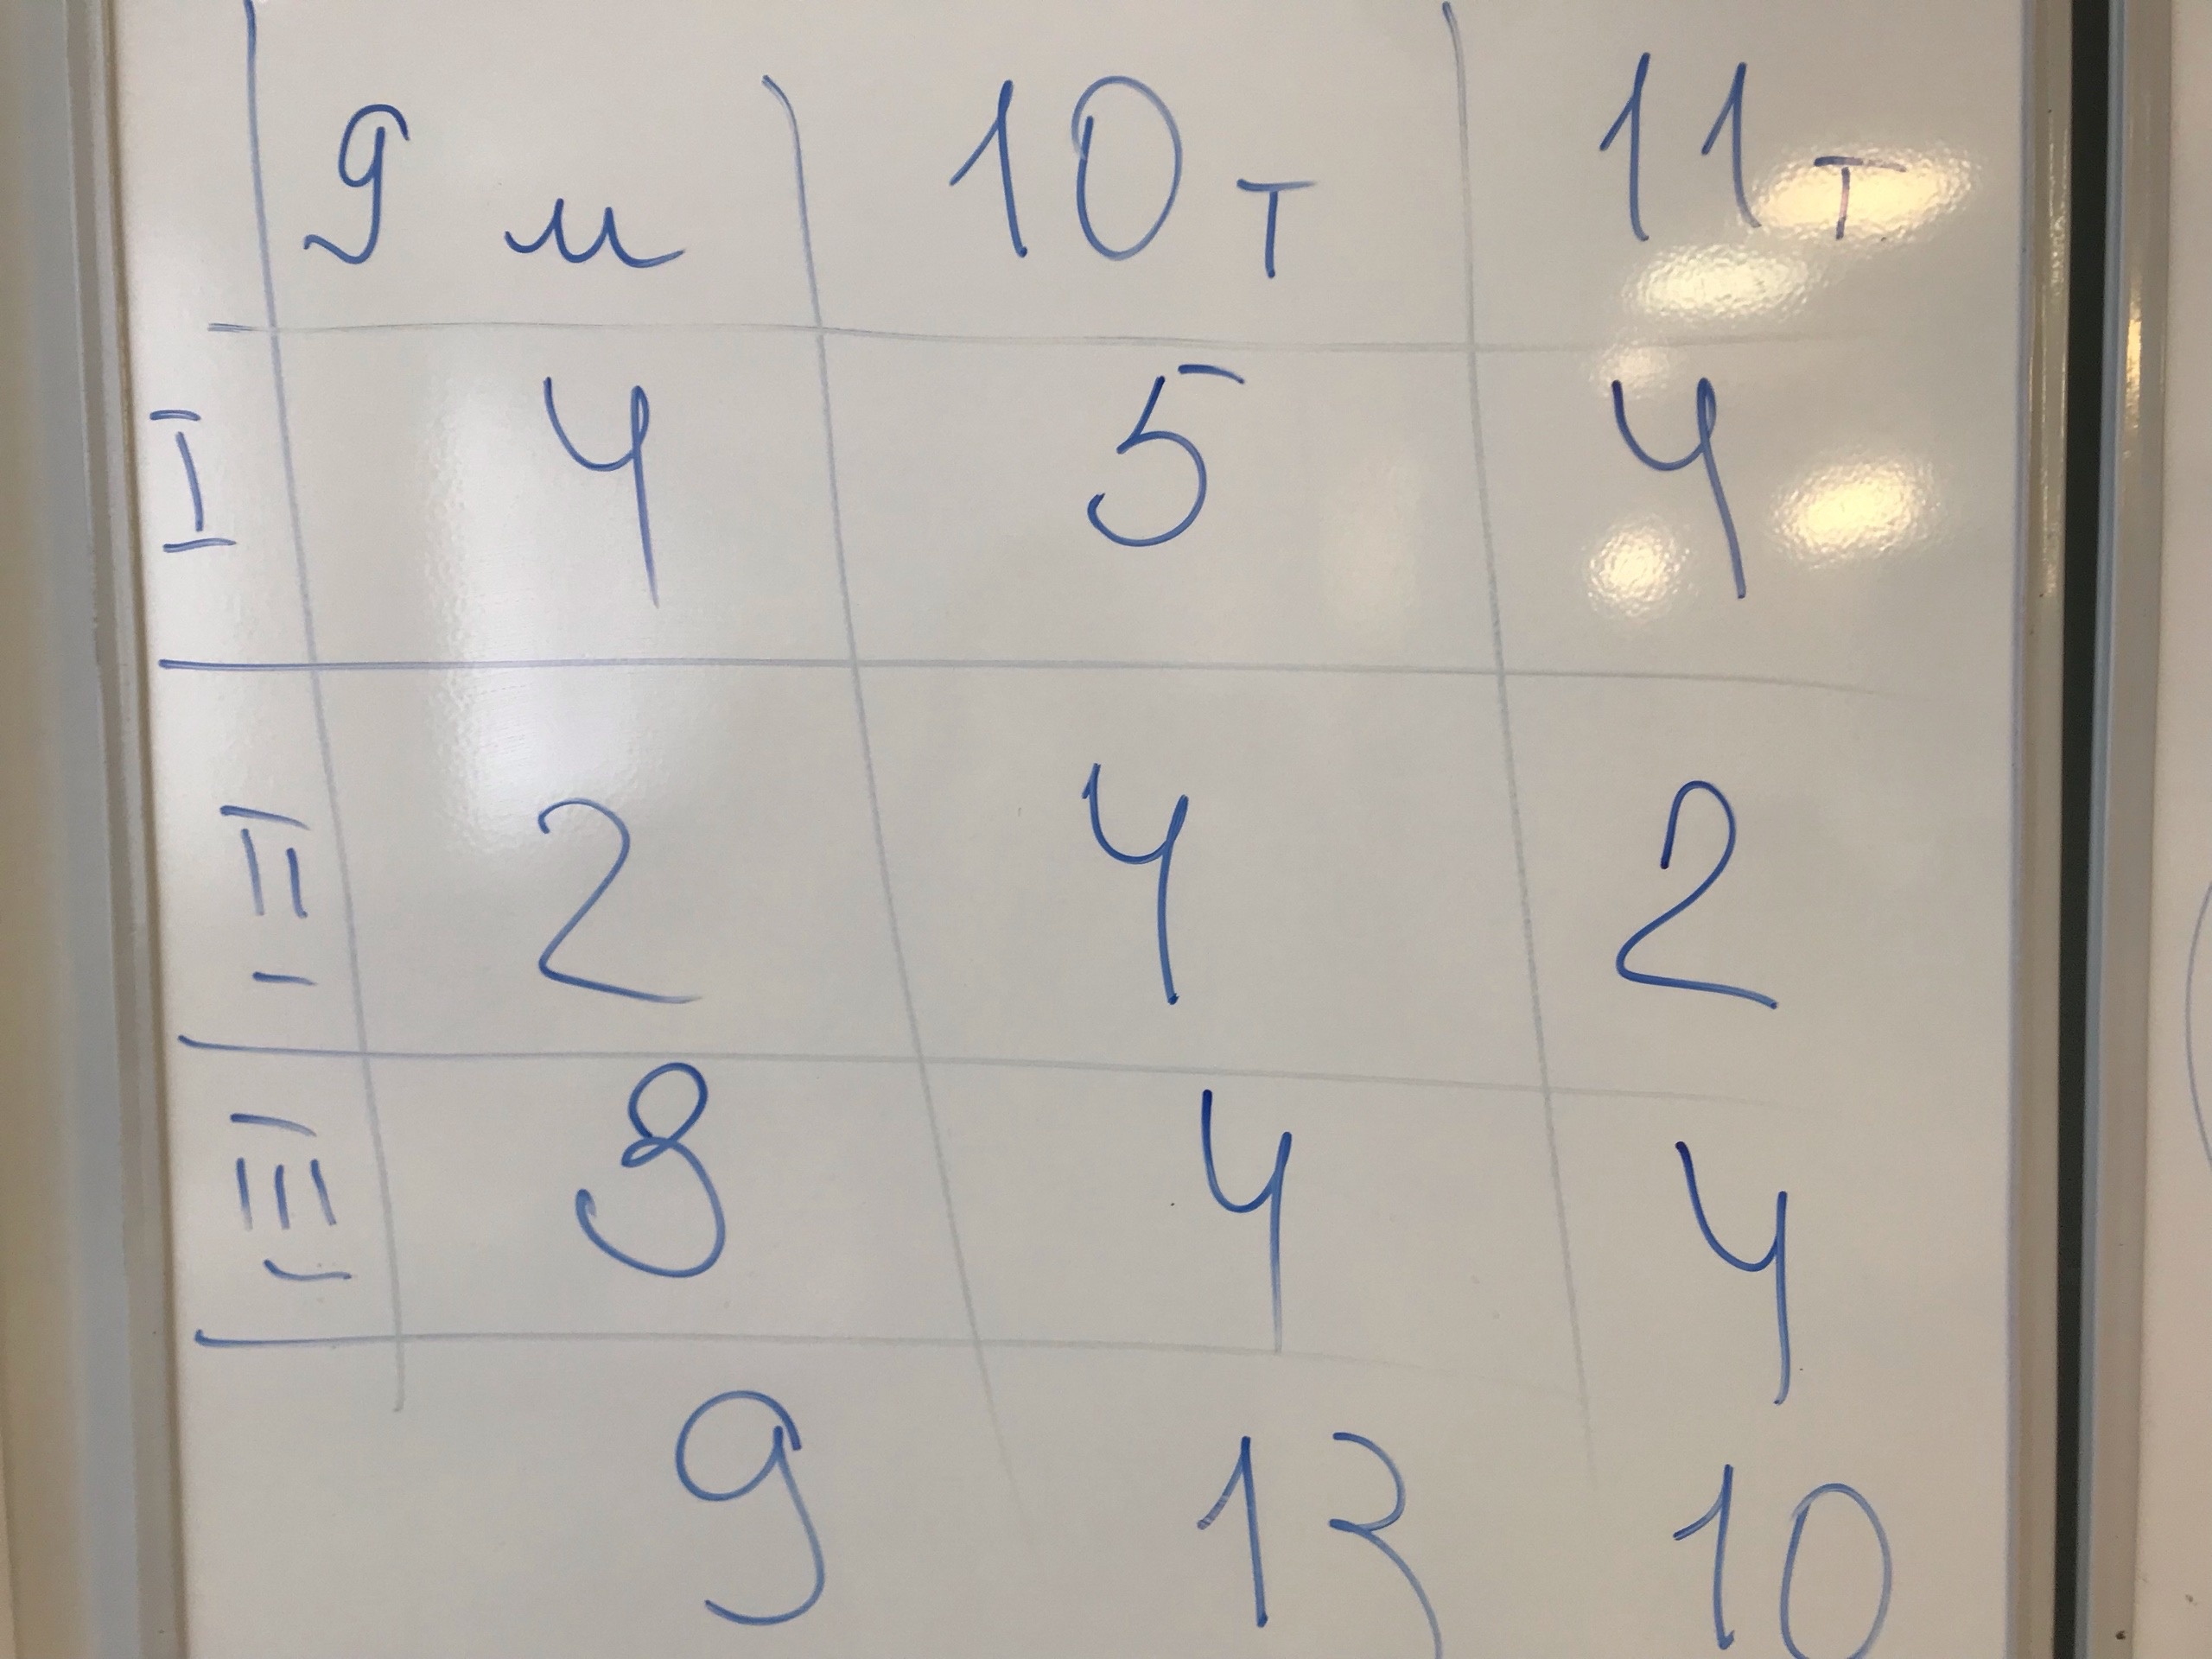 9 и 10 т 11 т
I 4 5 4
II 2 4 2
III 3 4 4
9 13 10